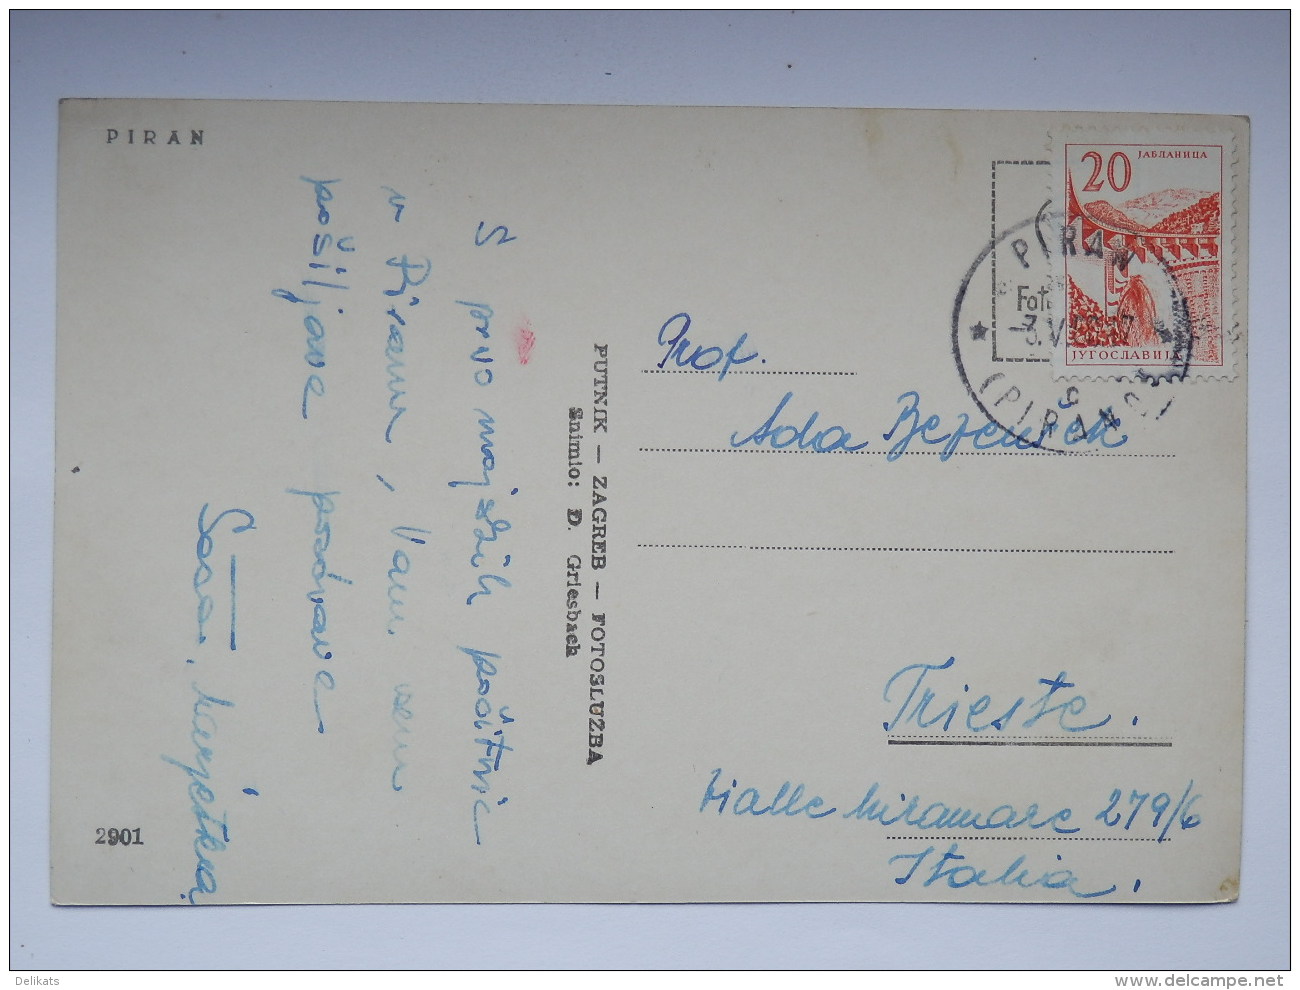 PIRAN
S prvo majskih počitnic
v Piranu, Vam vsem
pošiljave pozdrave
Sasa, Marjetka
2901
PUTNIK — ZAGREB — FOTOSLUŽBA
Snimio: Đ. Griesbach
20 ЈАБЛАНИЦА
ЈУГОСЛАВИЈА
PIRAN
(PIRANO)
Prof.
Ada
Trieste.
Vialle Miramare 279/6
Italia.
Delikats
www.delcampe.net